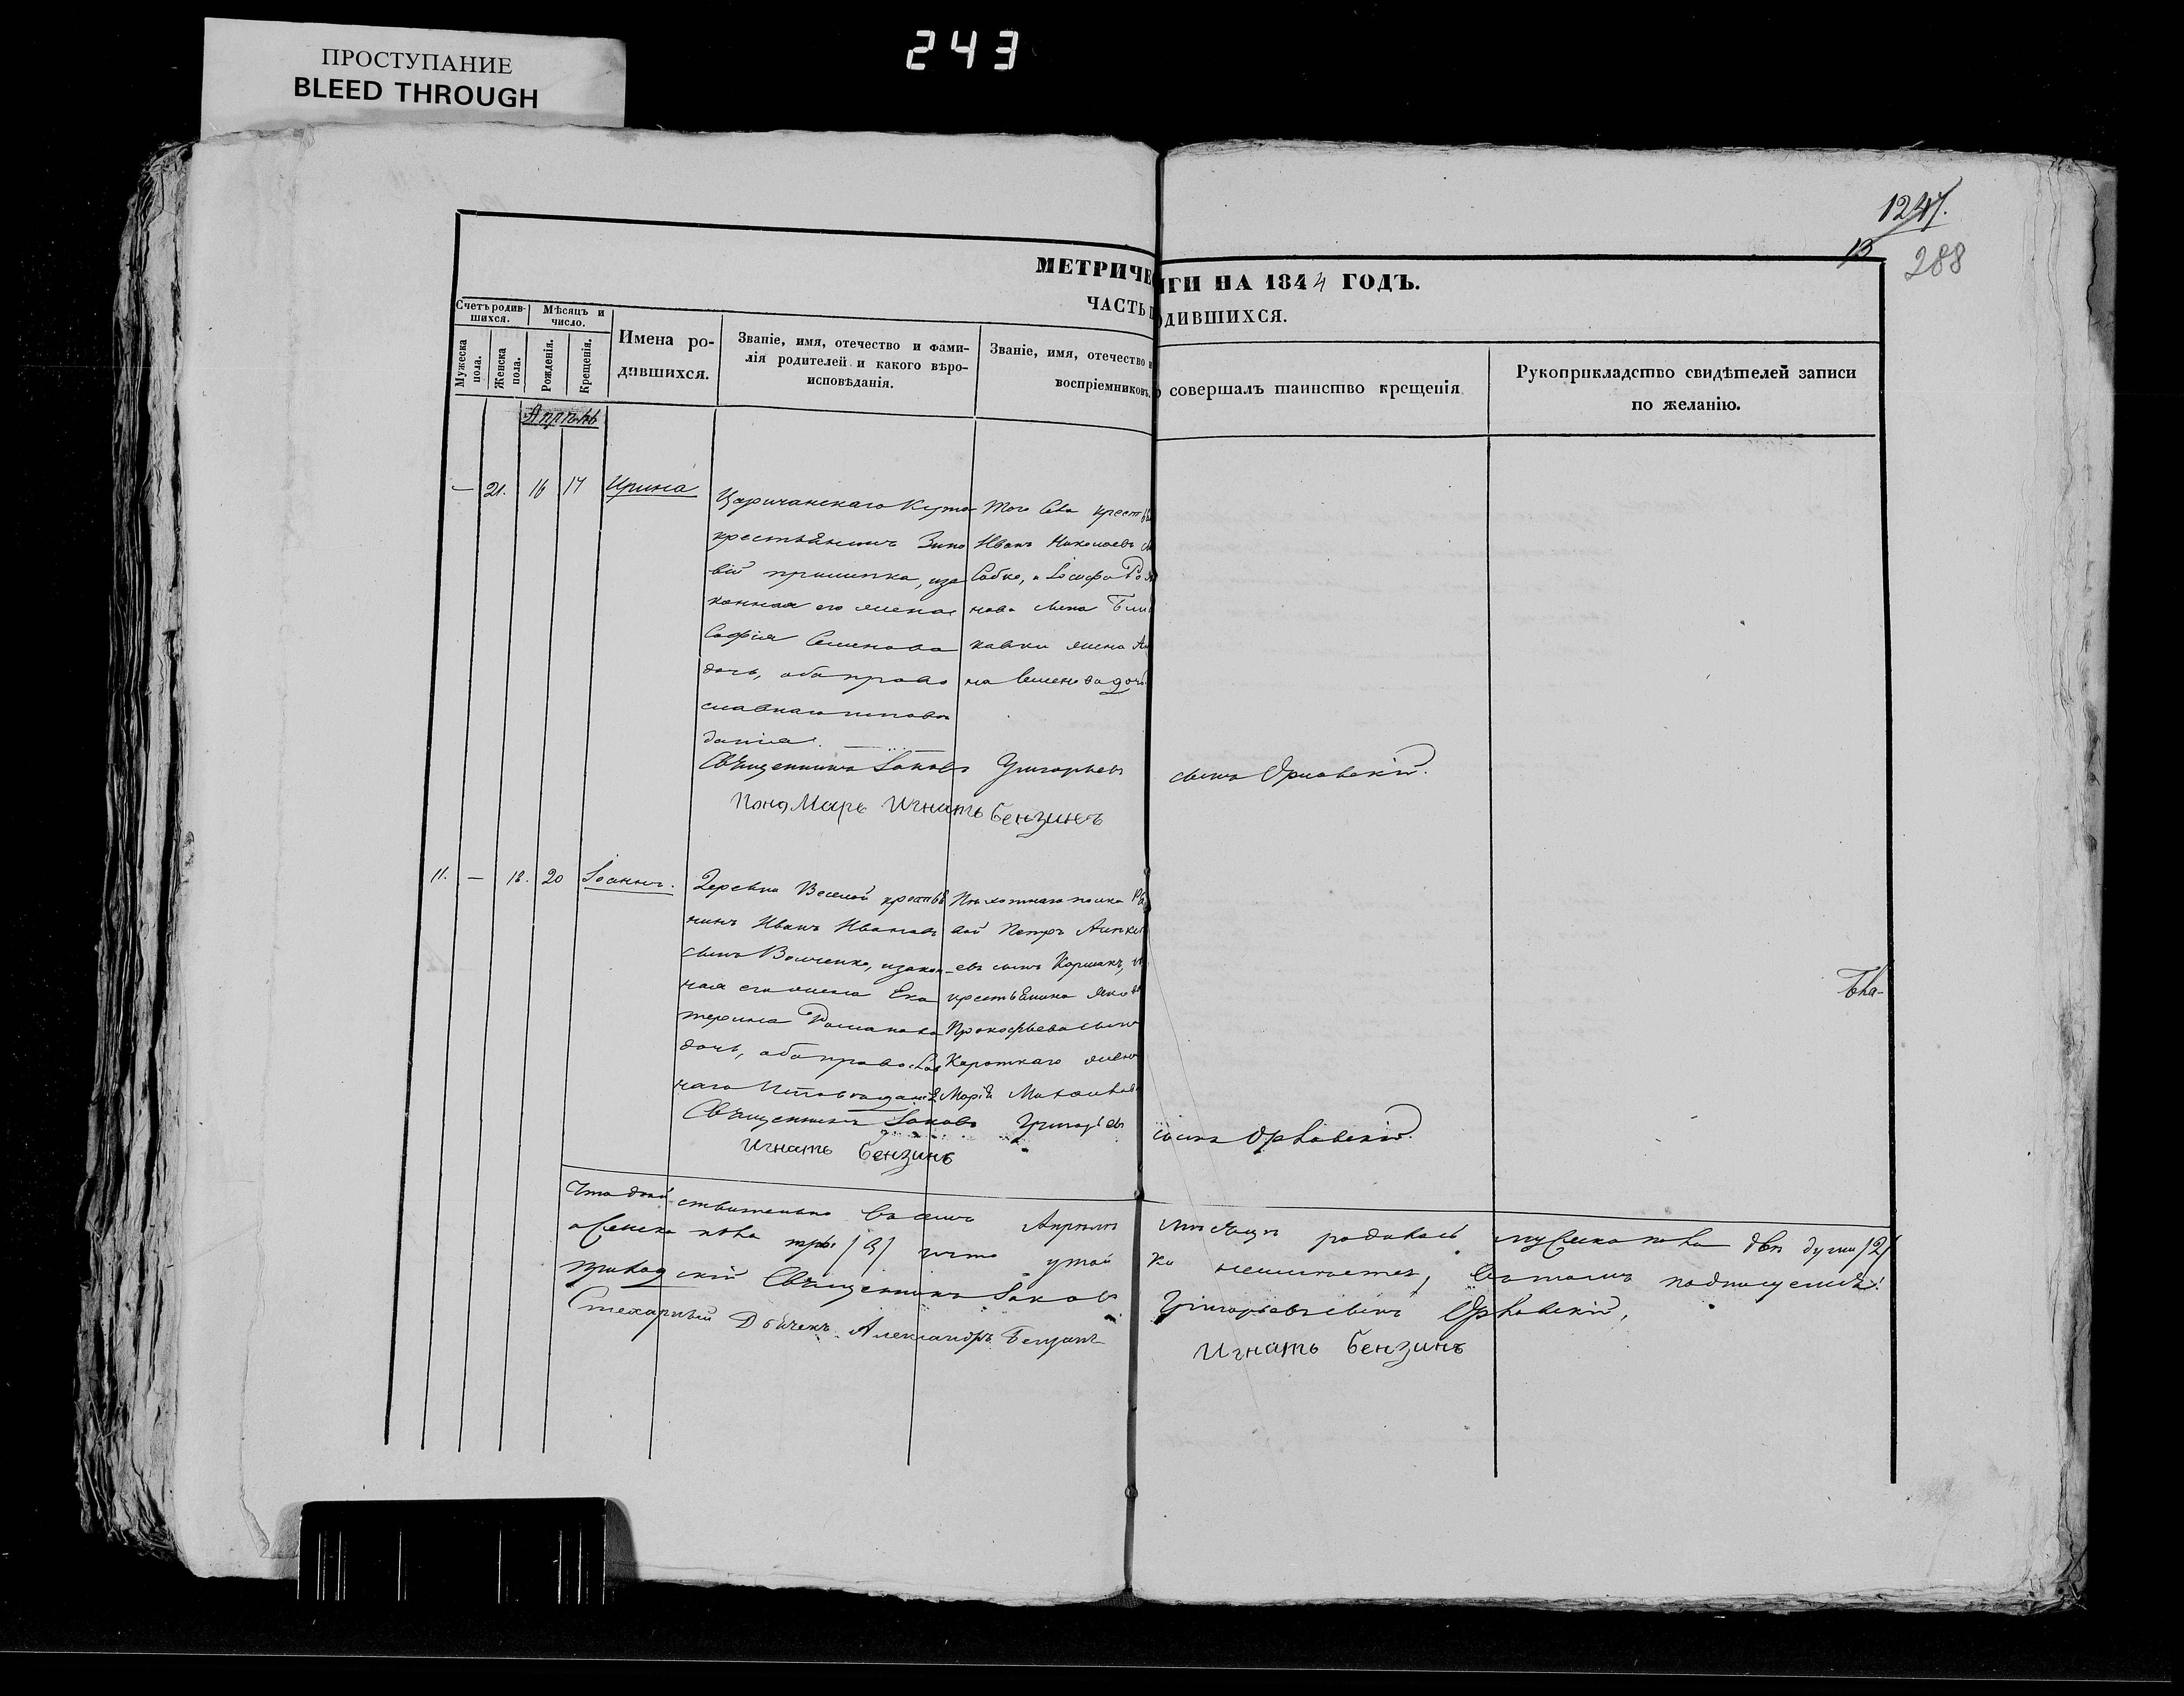 ПРОСТУПАНИЕ
BLEED THROUGH
243
1247.
13
288
МЕТРИЧЕ
ГИ НА 1844 ГОДЪ.
ЧАСТЬ П
ОДИВШИХСЯ.
Счетъ родив-
шихся.
Мѣсяцъ и
число.
Мужеска
пола.
Женска
пола.
Рожденія.
Крещенія.
Имена ро-
дившихся.
Званіе, имя, отечество и фами-
лія родителей и какого вѣро-
исповѣданія.
Званіе, имя, отечество и
воспріемниковъ.
совершалъ таинство крещенія
Рукоприкладство свидѣтелей записи
по желанію.
Апрѣль
— 21. 16 17 Ирина
Царичанскаго Кута
крестьянинъ Зино
вій, изо
конная его жена
Софія Семенова
дочь, оба право
славнаго исповѣ
данія.
Того Села крестья
Иванъ Николаевъ
нова сына
жена
на Семенова дочь
Священникъ Іаковъ Григорьевъ сынъ Орловскій.
Пономарь Игнатъ Бензинъ
11. — 18. 20 Іоаннъ.
Деревни Веселой крестья
нинъ Иванъ Ивановъ
сынъ Волченко, изакон
ная его жена Ека
терина Романова
дочь, оба православ
наго Исповѣданія
Пѣхотнаго полка
Петръ
евъ сынъ Коршакъ, и
крестьянина Яков
Прокофьева сына
Короткаго жена
Марія Михайлова
Священникъ Іаковъ Григорьевъ сынъ Орловскій.
Игнатъ Бензинъ
Что дѣйствительно Всемъ Апрѣлѣ мѣсяцѣ родилось мужеска пола двѣ души /2/
а женска пола три /3/ ичто утай ки неимѣется, Вътомъ подписуемся:
приходскій Священникъ Іаковъ Григорьевъ сынъ Орловскій,
Стихарный Дьячекъ Александръ Бензинъ
Игнатъ Бензинъ